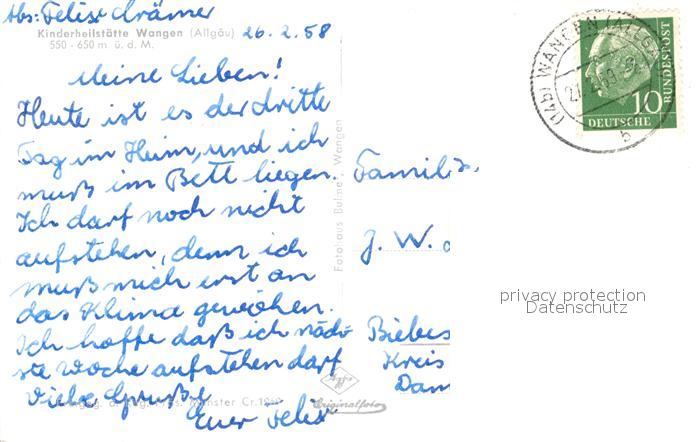 Abs: Felix Krämer
Kinderheilstätte Wangen (Allgäu) 26.2.58
550 - 650 m ü. d. M.
Meine Lieben!
Heute ist es der dritte
Tag im Heim, und ich
muß im Bett liegen.
Ich darf noch nicht
aufstehen, denn ich
muß mich erst an
das Klima gewöhen.
Ich hoffe daß ich näch-
ste Woche aufstehen darf
Viele Grüße
Euer Felix
Fotohaus Wangen
Agfa
Originalfoto
Familie
J. W.
Biebes
Kreis
Dam
(14b) WANGEN (ALLGÄU)
b
10
DEUTSCHE
BUNDESPOST
privacy protection
Datenschutz